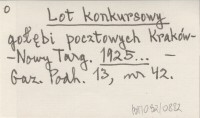 0
Lot konkursowy
gołębi pocztowych Kraków-
-Nowy Targ. 1925... -
Gaz. Podh. 13, nr 42.